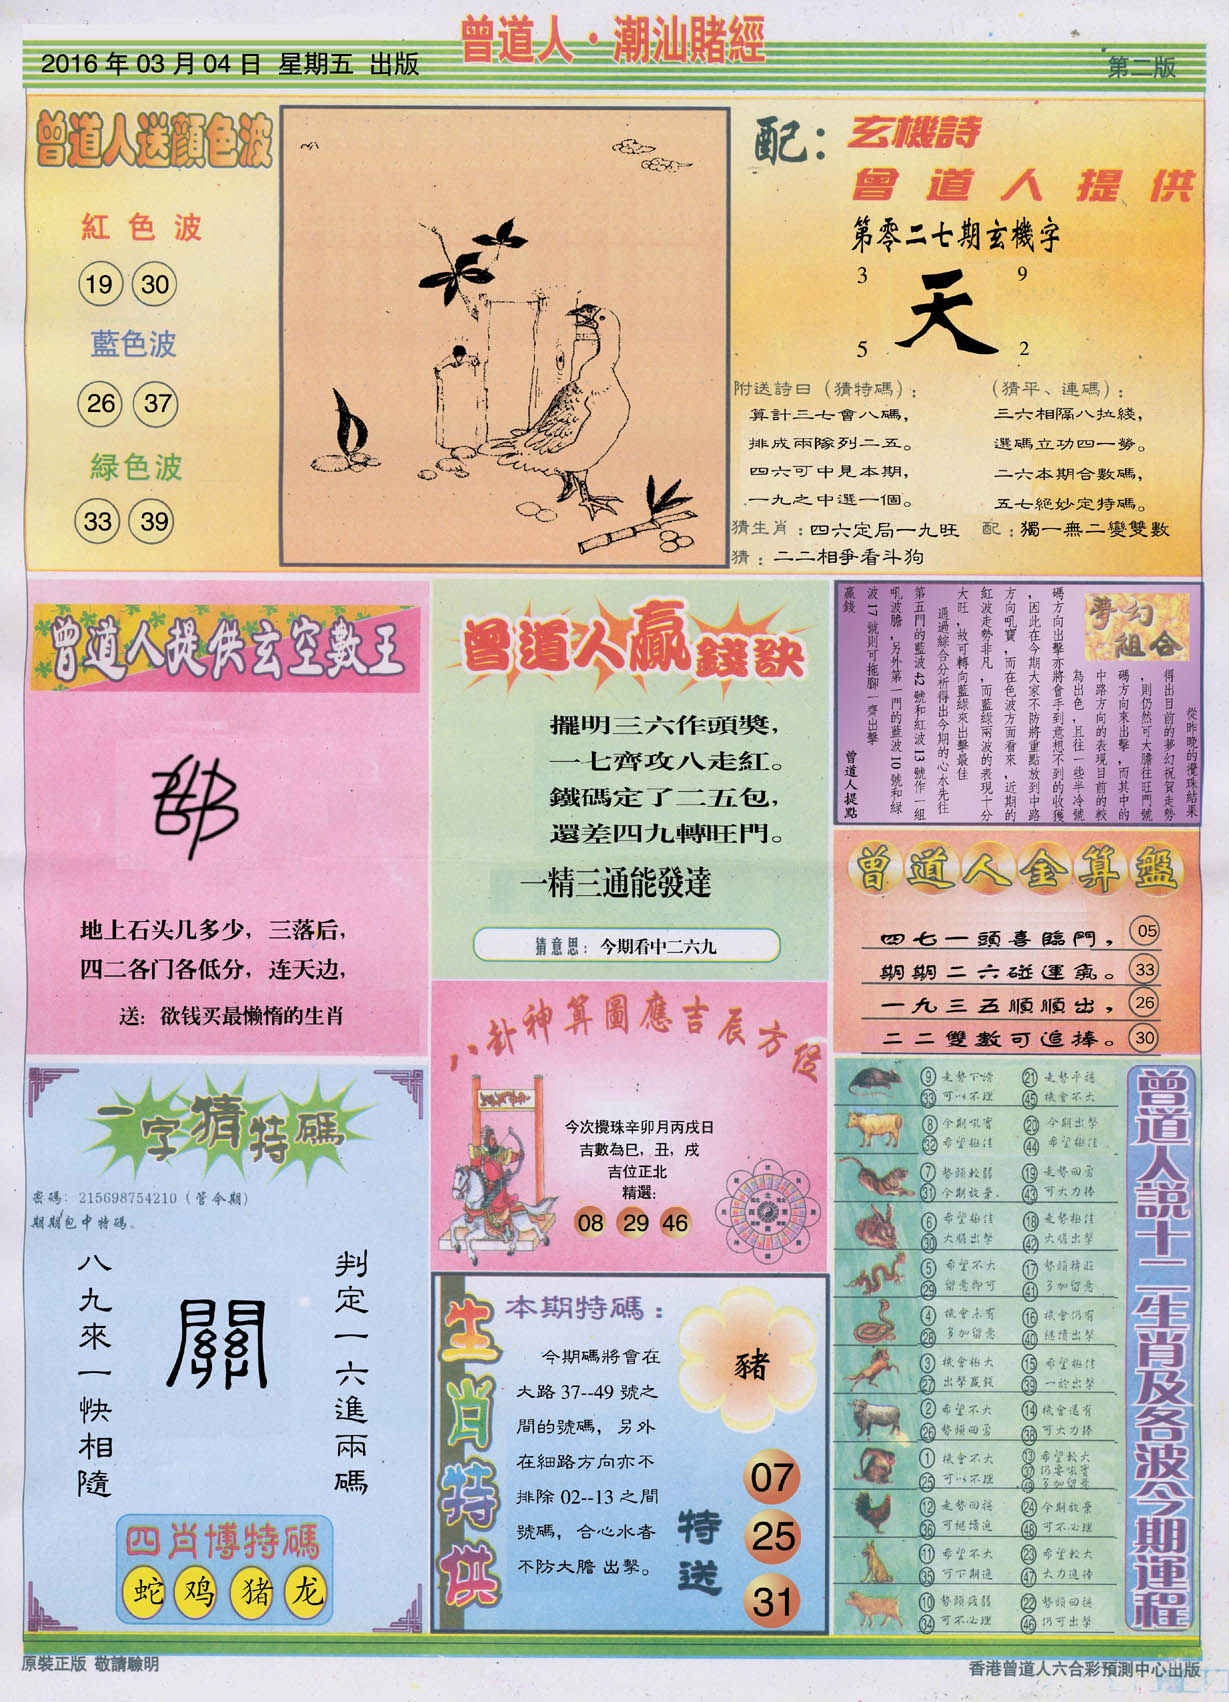 曾道人·潮汕賭經
2016 年 03 月 04 日 星期五 出版
第二版
曾道人送顔色波
紅色波
19 30
藍色波
26 37
緑色波
33 39
配：玄機詩
曾道人提供
第零二七期玄機字
3 9
天
5 2
附送詩曰（猜特碼）：
算計三七會八碼，
排成兩隊列二五。
四六可中見本期，
一九之中選一個。
（猜平、連碼）：
三六相隔八拉綫，
選碼立功四一勞。
二六本期合數碼，
五七絕妙定特碼。
猜生肖：四六定局一九旺
配：獨一無二變雙數
猜：二二相爭看斗狗
曾道人提供玄空數王
地上石头几多少，三落后，
四二各门各低分，连天边，
送：欲钱买最懒惰的生肖
曾道人贏錢訣
擺明三六作頭獎，
一七齊攻八走紅。
鐵碼定了二五包，
還差四九轉旺門。
一精三通能發達
猜意思：今期看中二六九
夢幻組合
從昨晚的攪珠結果
得出目前的夢幻祝賀走勢
，則仍然可大膽往旺門號
碼方向來出擊，而其中的
中路方向的表現目前的較
為出色，且往一些半冷號
碼方向出擊亦將會手到意想不到的收獲
，因此在今期大家不防將重點放到中路
方向吼寶，而在色波方面看來，近期的
紅波走勢非凡，而藍綠兩波的表現十分
大旺，故可轉向藍綠來出擊最佳
通過綜合分析得出今期的心水先往
第五門的藍波 42 號和紅波 13 號作一組
吼波膽，另外第一門的藍波 10 號和綠
波 17 號則可拖腳一齊出擊
贏錢
曾道人提點
曾道人金算盤
四七一頭喜臨門， 05
期期二六碰運氣。 33
一九三五順順出， 26
二二雙數可追捧。 30
八卦神算圖應吉辰方位
今次攪珠辛卯月丙戌日
吉數為巳，丑，戌
吉位正北
精選：
08 29 46
一字猜特碼
密碼：215698754210（管令期）
期期包中特碼。
判定一六進兩碼
關
八九來一快相隨
四肖博特碼
蛇 鸡 猪 龙
生肖特供
本期特碼：
今期碼將會在
大路 37--49 號之
間的號碼，另外
在細路方向亦不
排除 02--13 之間
號碼，合心水者
不防大膽 出擊。
豬
特送
07
25
31
曾道人説十二生肖及各波今期運程
9 走勢下滑 21 走勢平穩
33 可以不理 45 機會不大
8 今期吼寶 20 今期出擊
32 希望極佳 44 希望極佳
7 勢頭較弱 19 勢頭回勇
31 今期放棄。 43 可大力捧
6 希望極佳 18 走勢極佳
30 大膽出擊 42 大膽出擊
5 希望不大 17 勢頭轉旺
29 留意即可 41 多加留意
4 機會未有 16 機會仍有
28 多加留意 40 繼續出擊
3 機會極大 15 希望極佳
27 出擊贏錢 39 一於出擊
2 希望不大 14 機會還有
26 勢頭回勇 38 可大力捧
1 機會不大 13 希望較大
25 可以不理 37 仍要吼寶
49 多加留意
12 走勢回穩 24 今期放棄
36 可繼續追 48 可不必理
11 希望不大 23 希望較大
35 可下期追 47 大力追捧
10 勢頭疲弱 22 勢頭回穩
34 可不必理 46 仍可出擊
原裝正版 敬請驗明
香港曾道人六合彩預測中心出版